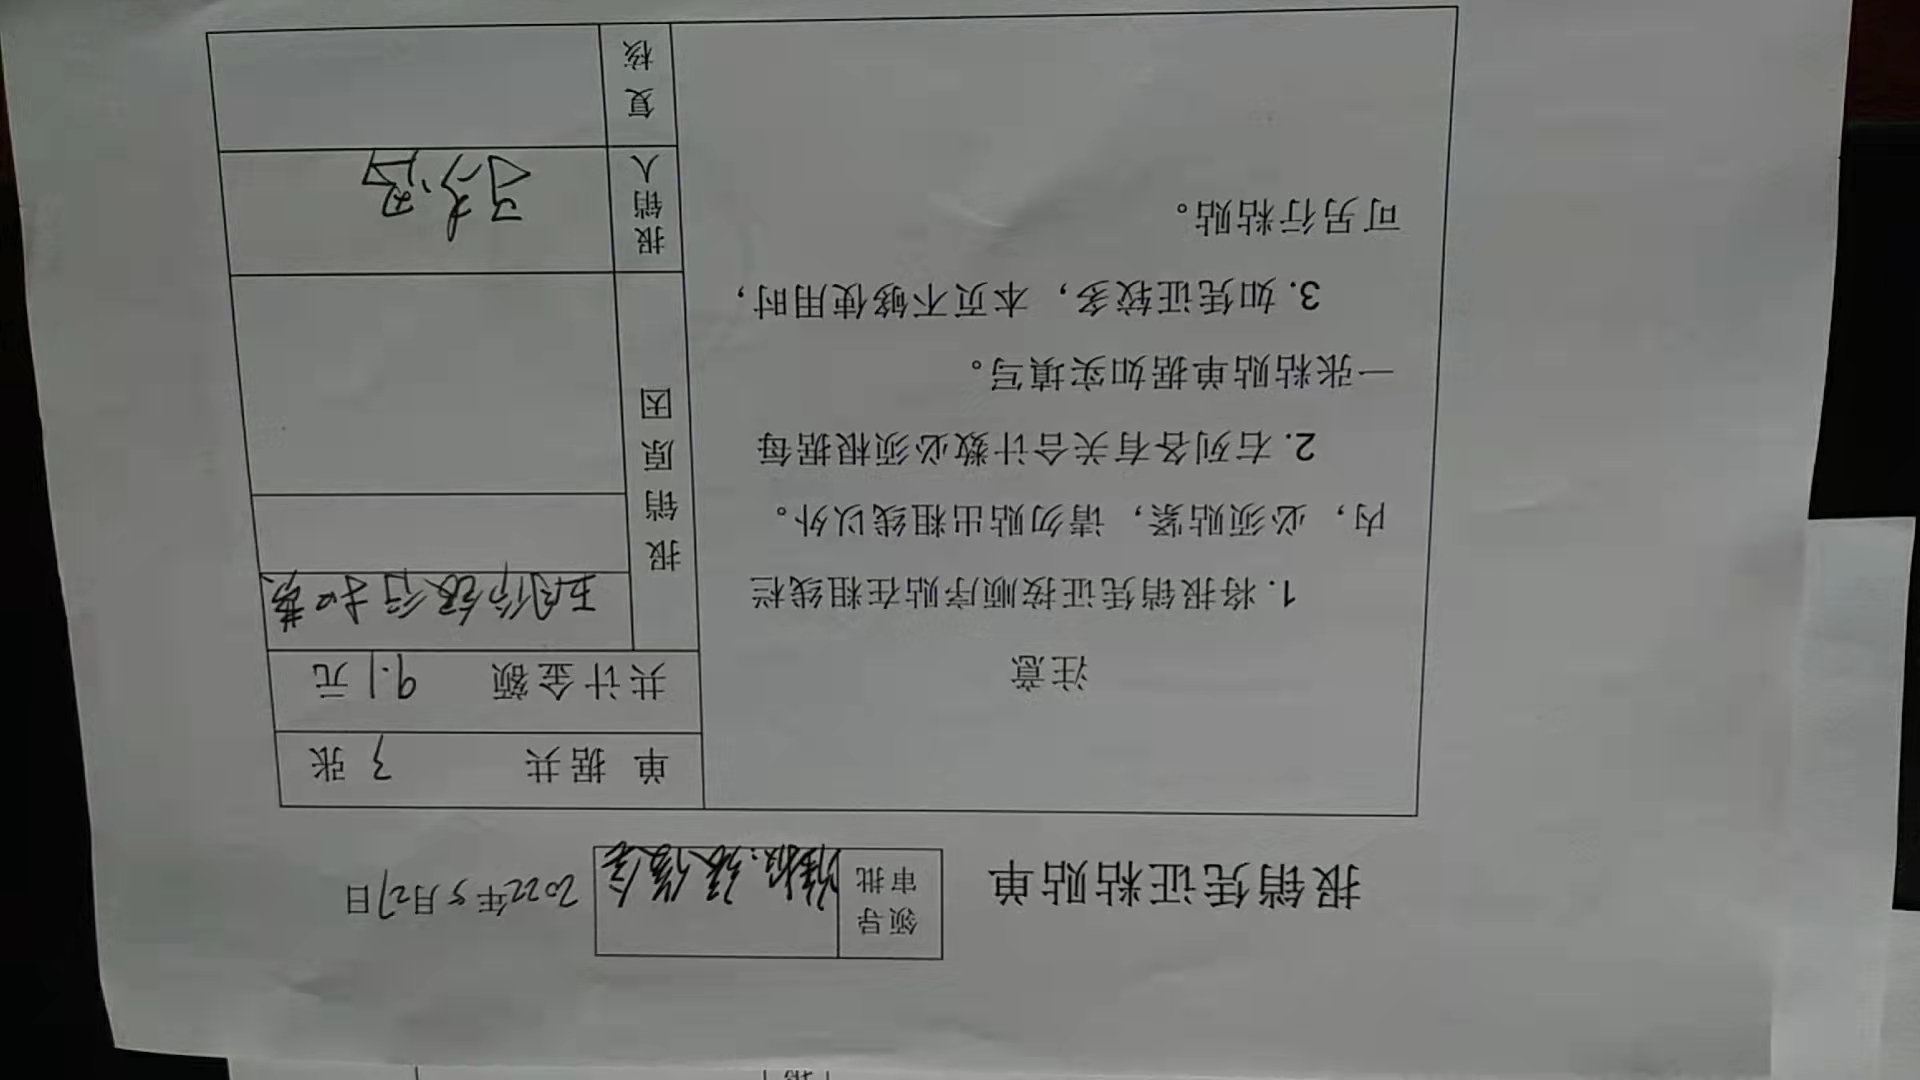 报销凭证粘贴单
领导
审批
准报.张俊宝
2022年5月27日
注意
1. 将报销凭证按顺序贴在粗线栏
内，必须贴紧，请勿贴出粗线以外。
2. 右列各有关合计数必须根据每
一张粘贴单据如实填写。
3. 如凭证较多，本页不够使用时，
可另行粘贴。
单据共 3 张
共计金额 9.1 元
报销原因
五月份银行扣费
报销人
复核